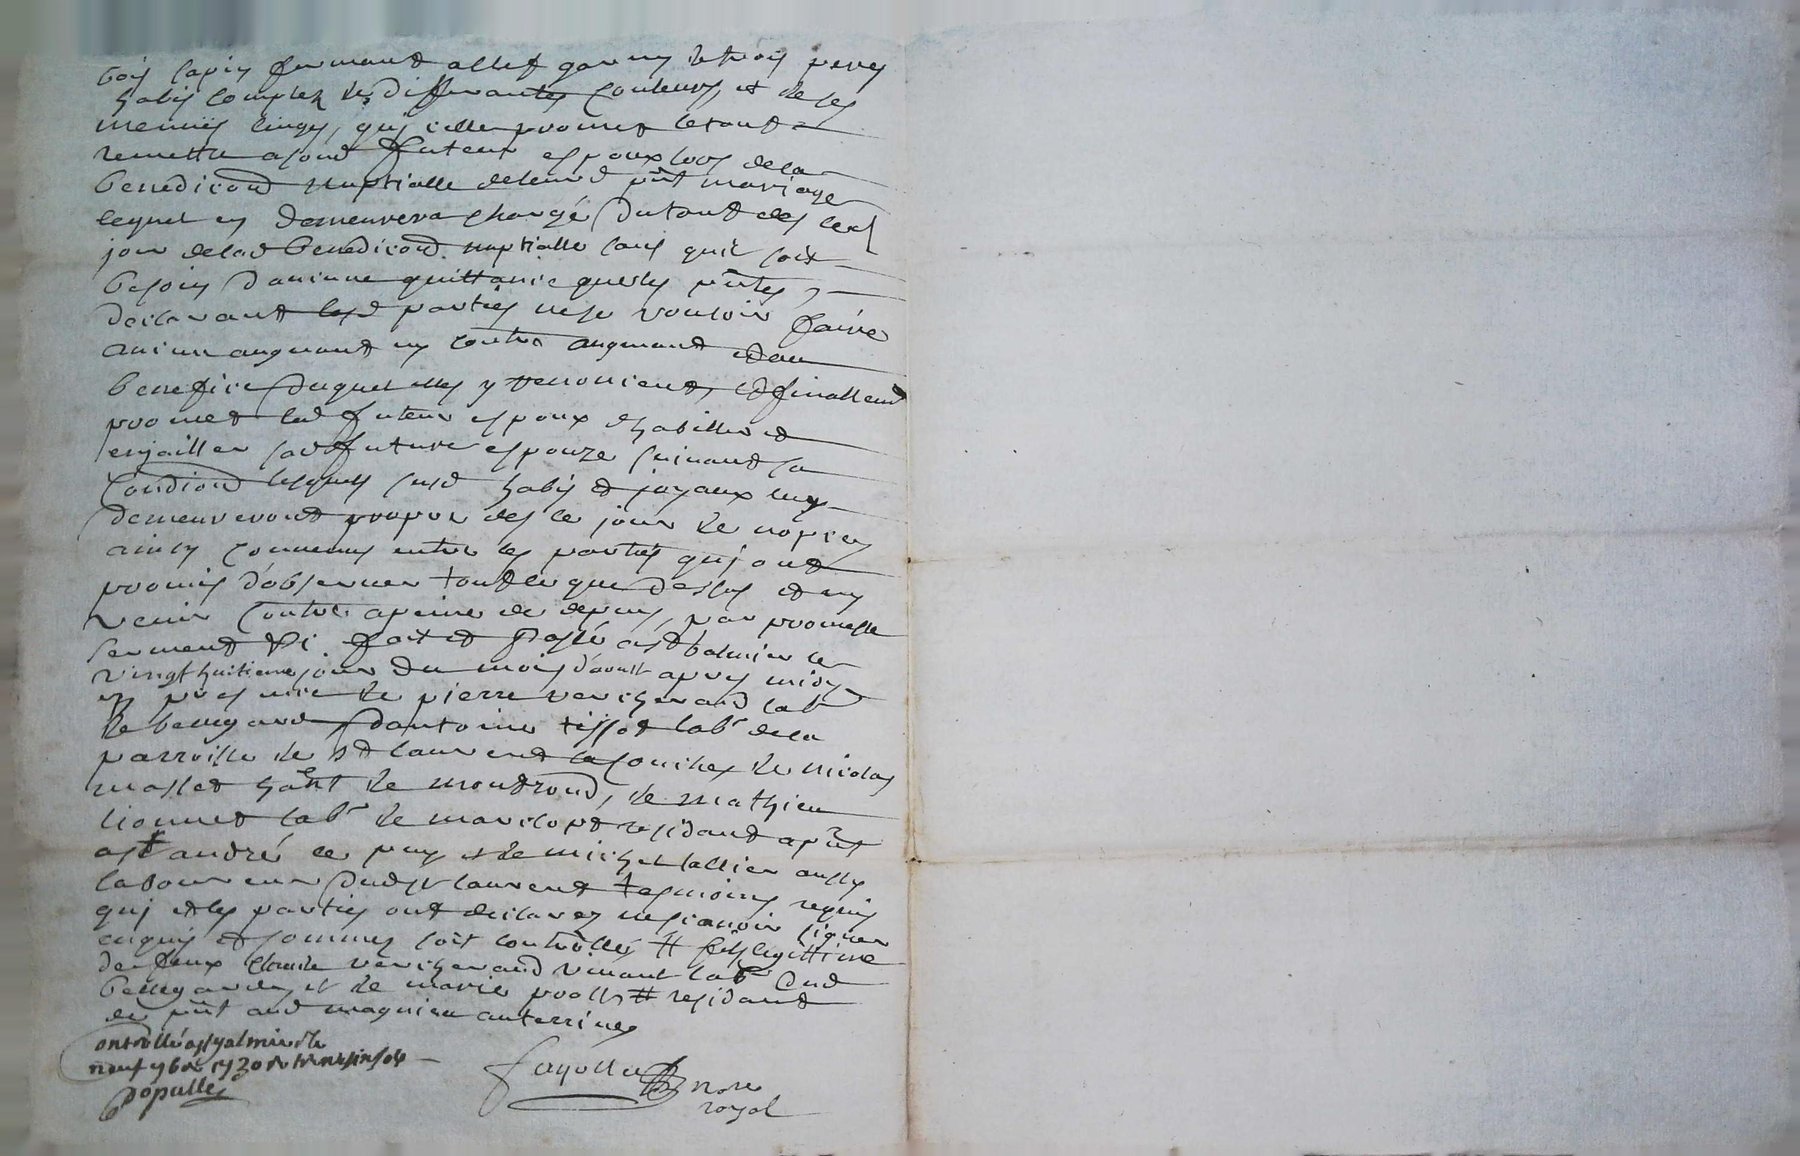 bois sapin fermant a clef garny de trois paires
habis complet de differantes couleurs, et de ses
menües linges, qu'icelle promet le tout
remettre a son d futeur espoux lors de la
benediction nuptialle de leur d pnt mariage
lequel en demeurera chargé du tout des le d
jour de lad benediction nuptialle sans quil soit
besoin daucune quittance que les pntes,
declarant lesd parties ne se vouloir faire
aucun augment ny contre augment et au
benefice duquel elles y renoncent, et finallemt
promet led futeur espoux dhabiller et
enjailler sad future espouze suivant sa
condiond lesquels susd habis et joyaux luy
demeureront propre des le jour de nopces
ainsy convenus entre les parties qui ont
promis d'observer tout ce que dessus et ny
venir contre a peine de depens, par promesse
serment &c. fait et passé a st galmier le
vingt huitieme jour du mois d'aoust apres midy
en presence de pierre vericheraud labr
de bellegarde d'antoine tissot labr de la
parroisse de st laurent la conches de nicolas
mallet habt de montrond, de mathieu
lionnet labr de marclopt residant a pnt
a st andré le puy et de michel lallier aussy
laboureur dud st laurent tesmoins requis
qui et les parties ont declarez ne scavoir signer
enquis et sommes soit controllé # fils legittime
de feux Claude vericheraud vivant labr dud
bellegarde, et de marie # residant
de pnt aud magnieu auterrive
Controllé a st galmier le
neuf 1730
Populle
fayolle nore
royal